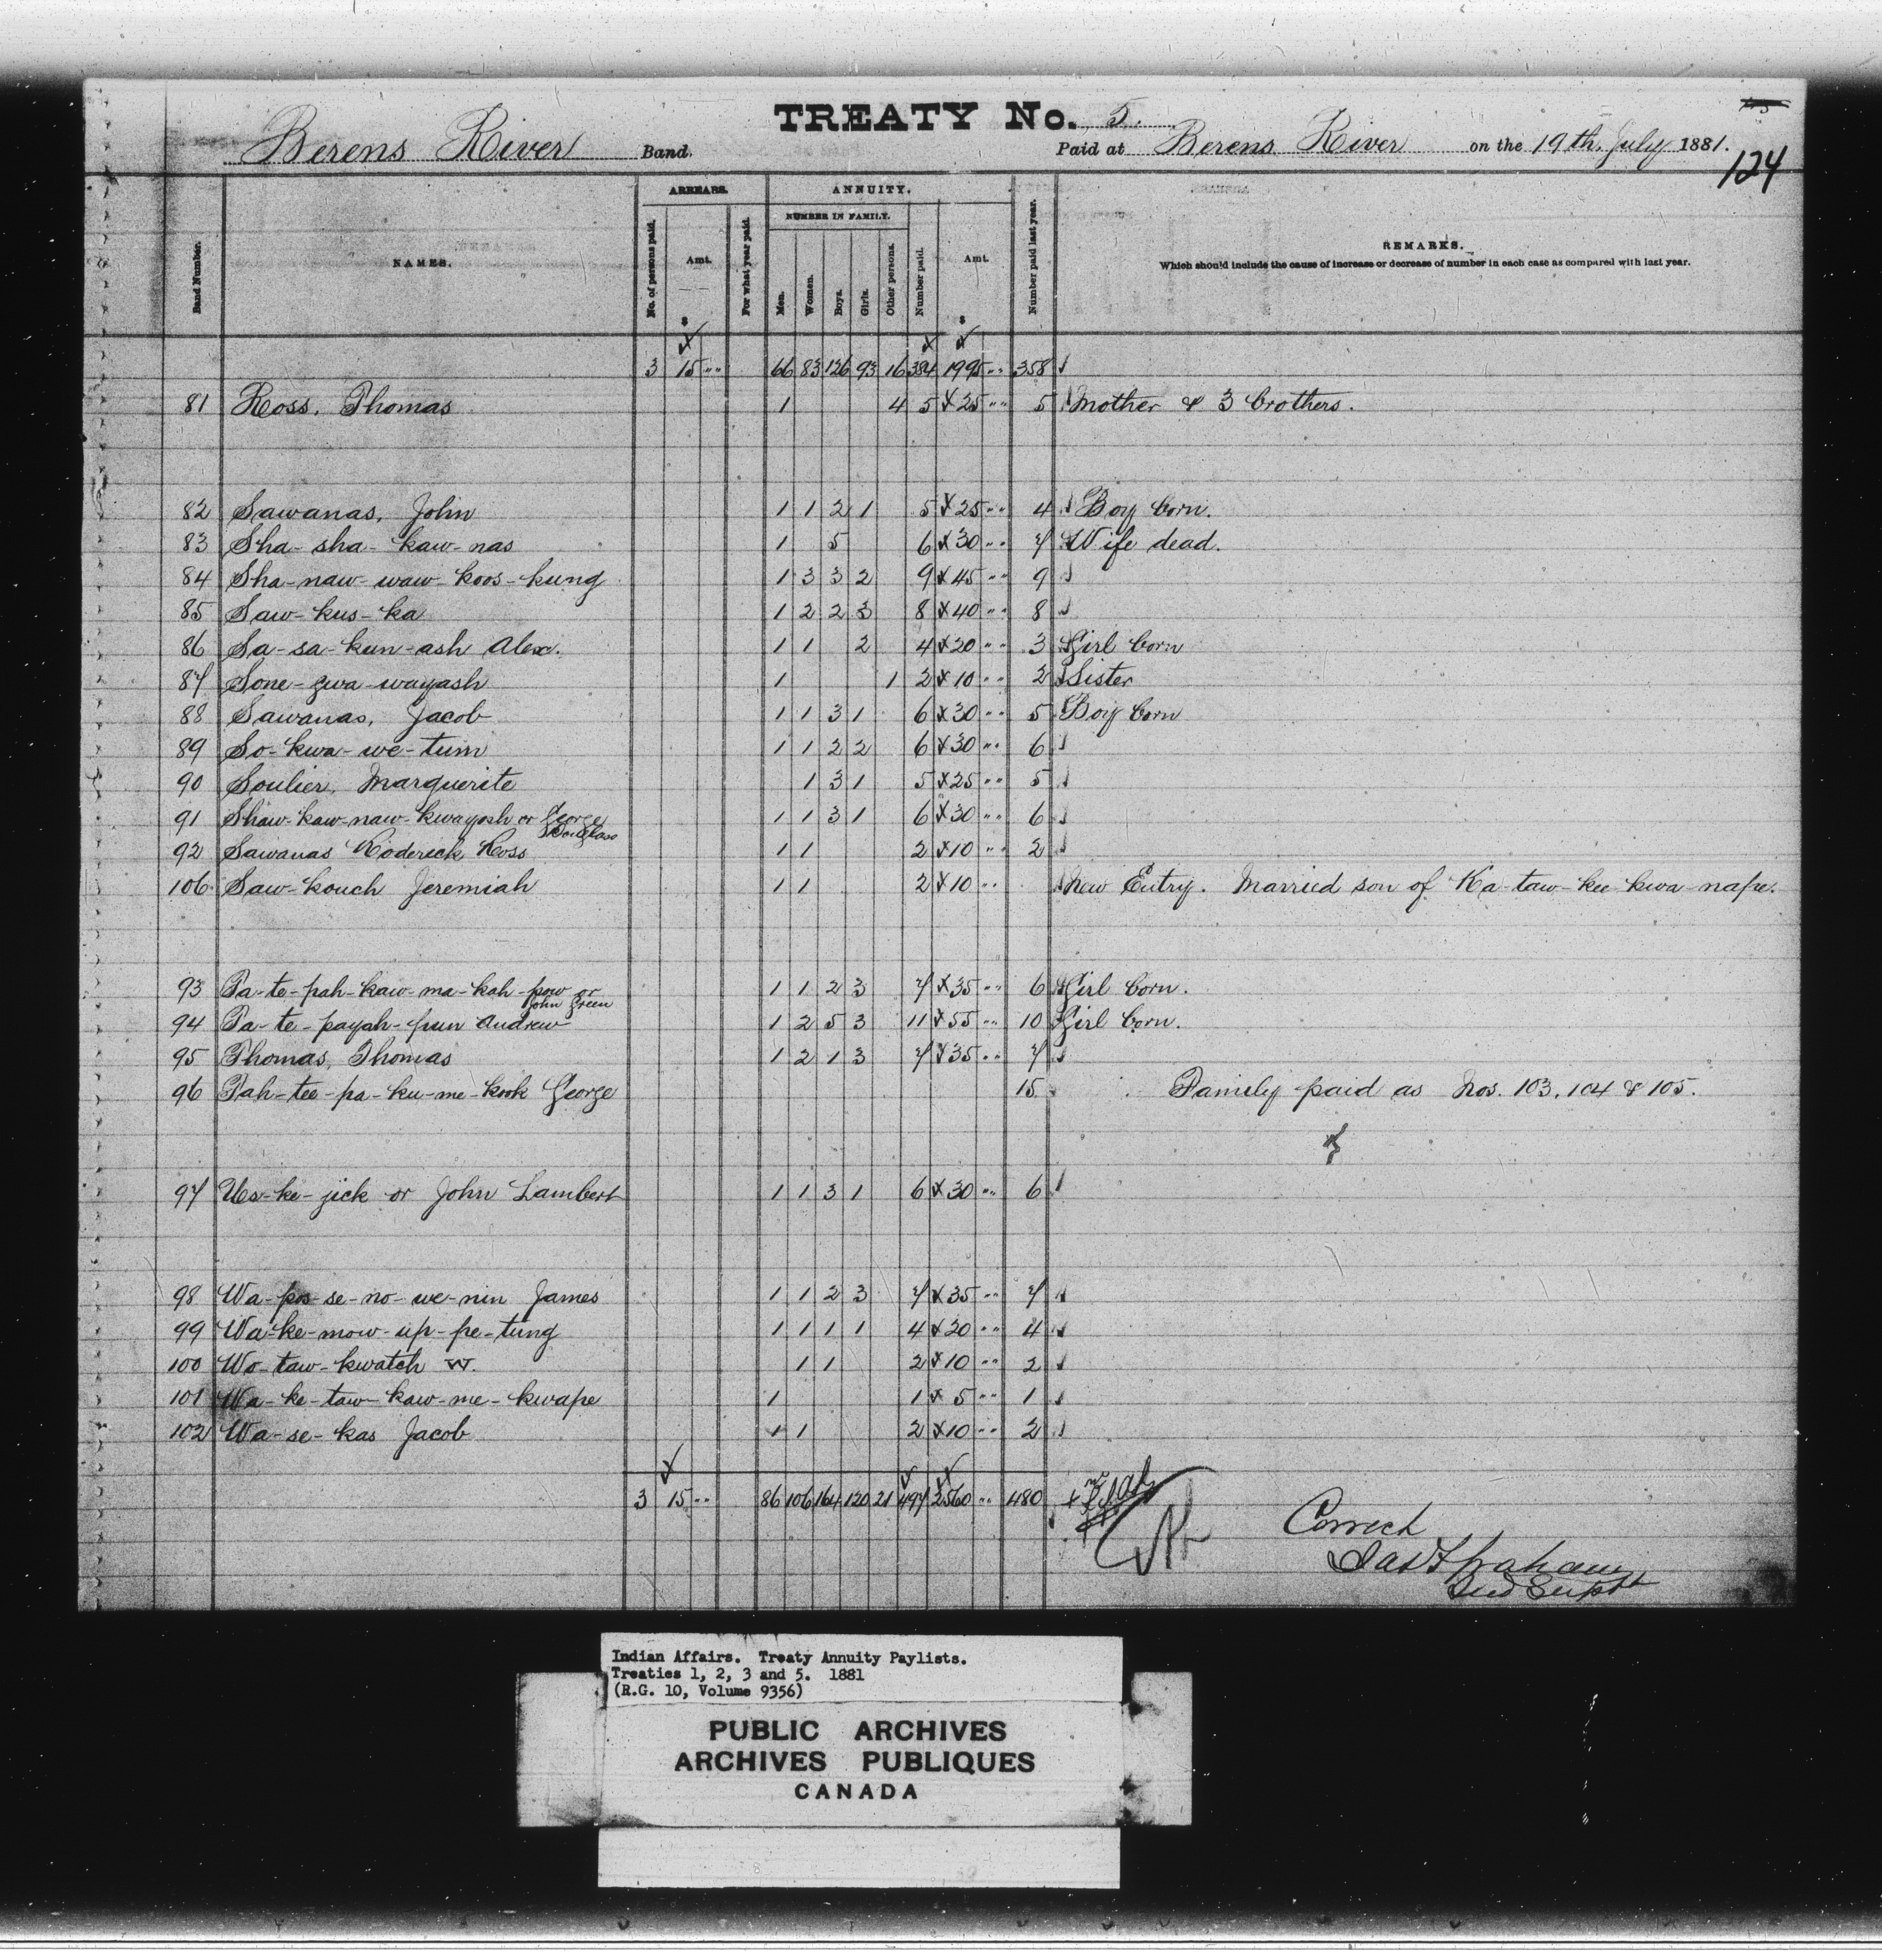 TREATY No. 5.
Berens River Band. Paid at Berens River on the 19th. July 1881.
124
ARREARS. ANNUITY.
NUMBER IN FAMILY.
Band Number. NAMES. No. of persons paid. Amt. For what year paid. Men. Women. Boys. Girls. Other persons. Number paid. Amt. Number paid last year. REMARKS.
Which should include the cause of increase or decrease of number in each case as compared with last year.
$ $
3 15 " 66 83 126 93 16 384 1995 " 358
81 Ross, Thomas 1 4 5 25 " 5 Mother & 3 brothers.
82 Sawanas, John 1 1 2 1 5 25 " 4 Boy born.
83 Sha-sha-kaw-nas 1 5 6 30 " 7 Wife dead.
84 Sha-naw-waw-koos-kung 1 3 3 2 9 45 " 9
85 Saw-kus-ka 1 2 2 3 8 40 " 8
86 Sa-sa-kun-ash Alex. 1 1 2 4 20 " 3 Girl born
87 Sone-gwa-wayash 1 1 2 10 " 2 Sister
88 Sawanas, Jacob 1 1 3 1 6 30 " 5 Boy born
89 So-kwa-we-tum 1 1 2 2 6 30 " 6
90 Soulier, Marguerite 1 3 1 5 25 " 5
91 Shaw-kaw-naw-kwayash or George Douglass 1 1 3 1 6 30 " 6
92 Sawanas Roderick Ross 1 1 2 10 " 2
106 Saw-kouch Jeremiah 1 1 2 10 " New Entry. Married son of Ka-taw-kee-kwa-nape.
93 Ta-te-pah-kaw-ma-kah-pow or John Green 1 1 2 3 7 35 " 6 Girl born.
94 Ta-te-payah-pun Andrew 1 2 5 3 11 55 " 10 Girl born.
95 Thomas, Thomas 1 2 1 3 7 35 " 7
96 Tah-tee-pa-ku-me-kook George 15 Family paid as Nos. 103, 104 & 105.
97 Us-ke-jick or John Lambert 1 1 3 1 6 30 " 6
98 Wa-pos-se-no-we-nin James 1 1 2 3 7 35 " 7
99 Wa-ke-mow-up-pe-tung 1 1 1 1 4 20 " 4
100 Wo-taw-kwatch W. 1 1 2 10 " 2
101 Wa-ke-taw-kaw-me-kwape 1 1 5 " 1
102 Wa-se-kas Jacob 1 1 2 10 " 2
3 15 " 86 106 164 120 21 497 2560 " 480
Correct
Jas F Graham
Ind Supt
Indian Affairs. Treaty Annuity Paylists.
Treaties 1, 2, 3 and 5. 1881
(R.G. 10, Volume 9356)
PUBLIC ARCHIVES
ARCHIVES PUBLIQUES
CANADA